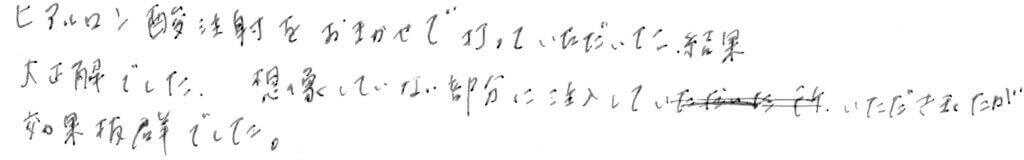 ヒアルロン酸注射をおまかせで打っていただいた結果
大正解でした。想像していない部分に注入していただきましたが
効果抜群でした。